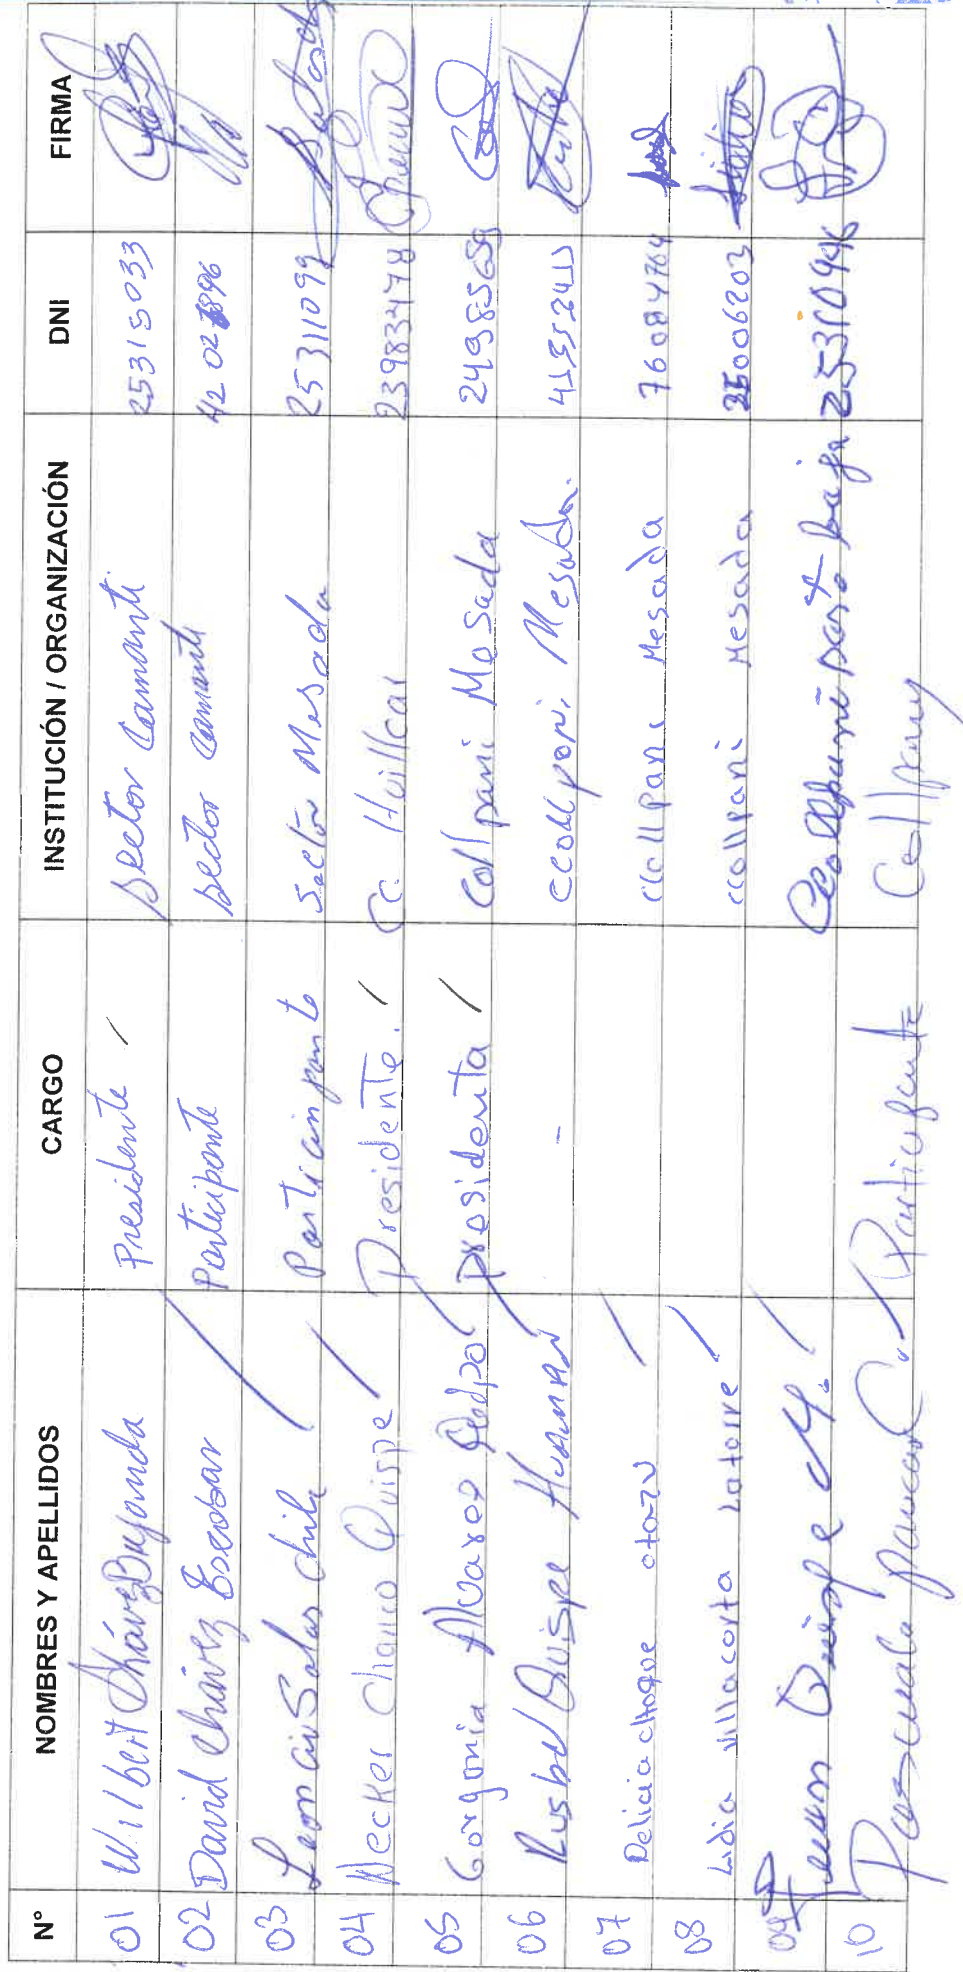 N° NOMBRES Y APELLIDOS CARGO INSTITUCIÓN / ORGANIZACIÓN DNI FIRMA
01 Wilbert Chávez Bujanda Presidente / Sector Camanti 25315033
02 David Chávez Escobar Participante Sector Camanti
03 Leoncio Salas Chile Participante Sector Mesada 25311099
04 Necker Chauco Quispe Presidente. / Cc Huillcar 23983478
05 Gorgonia Alvarez Presidenta / Collpani Mosada 24985659
06 Rusbel Quispe Huaman - Ccollpani Mesada.
07 Delicia choque otazu ccollpani Mesada 76084764
08 Lidia Villacorta Latorre ccollpani Mesada
09 Quispe M. baja
10 Pascuala Paucar C. Participante Collpany